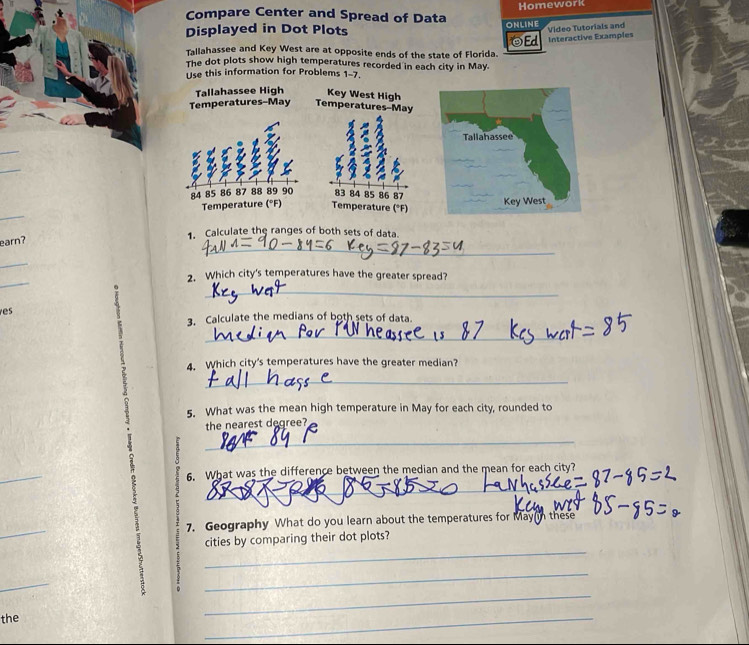 Homework
Compare Center and Spread of Data
Displayed in Dot Plots
ONLINE
Ed
Video Tutorials and
Interactive Examples
Tallahassee and Key West are at opposite ends of the state of Florida.
The dot plots show high temperatures recorded in each city in May.
Use this information for Problems 1–7.
Tallahassee High
Temperatures–May
84 85 86 87 88 89 90
Temperature (°F)
Key West High
Temperatures–May
83 84 85 86 87
Temperature (°F)
Tallahassee
Key West
1. Calculate the ranges of both sets of data.
= 90 - 84 = 6 Key = 87 - 83 = 4
2. Which city's temperatures have the greater spread?
Key
3. Calculate the medians of both sets of data.
median for is 87 Key = 85
4. Which city's temperatures have the greater median?
tall hass e
5. What was the mean high temperature in May for each city, rounded to
the nearest degree?
84
6. What was the difference between the median and the mean for each city?
= 87 - 85 = 2
85 - 85 =
7. Geography What do you learn about the temperatures for May in these
cities by comparing their dot plots?
earn?
the
© Houghton Mifflin Harcourt Publishing Company • Image Credit: ©Monkey Business Images/Shutterstock
© Houghton Mifflin Harcourt Publishing Company